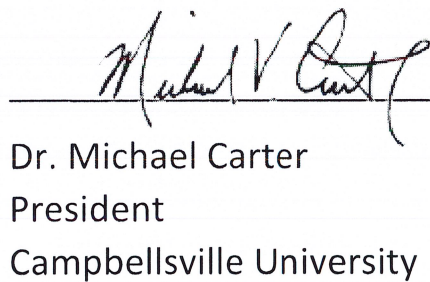 Michael V Carter
Dr. Michael Carter
President
Campbellsville University